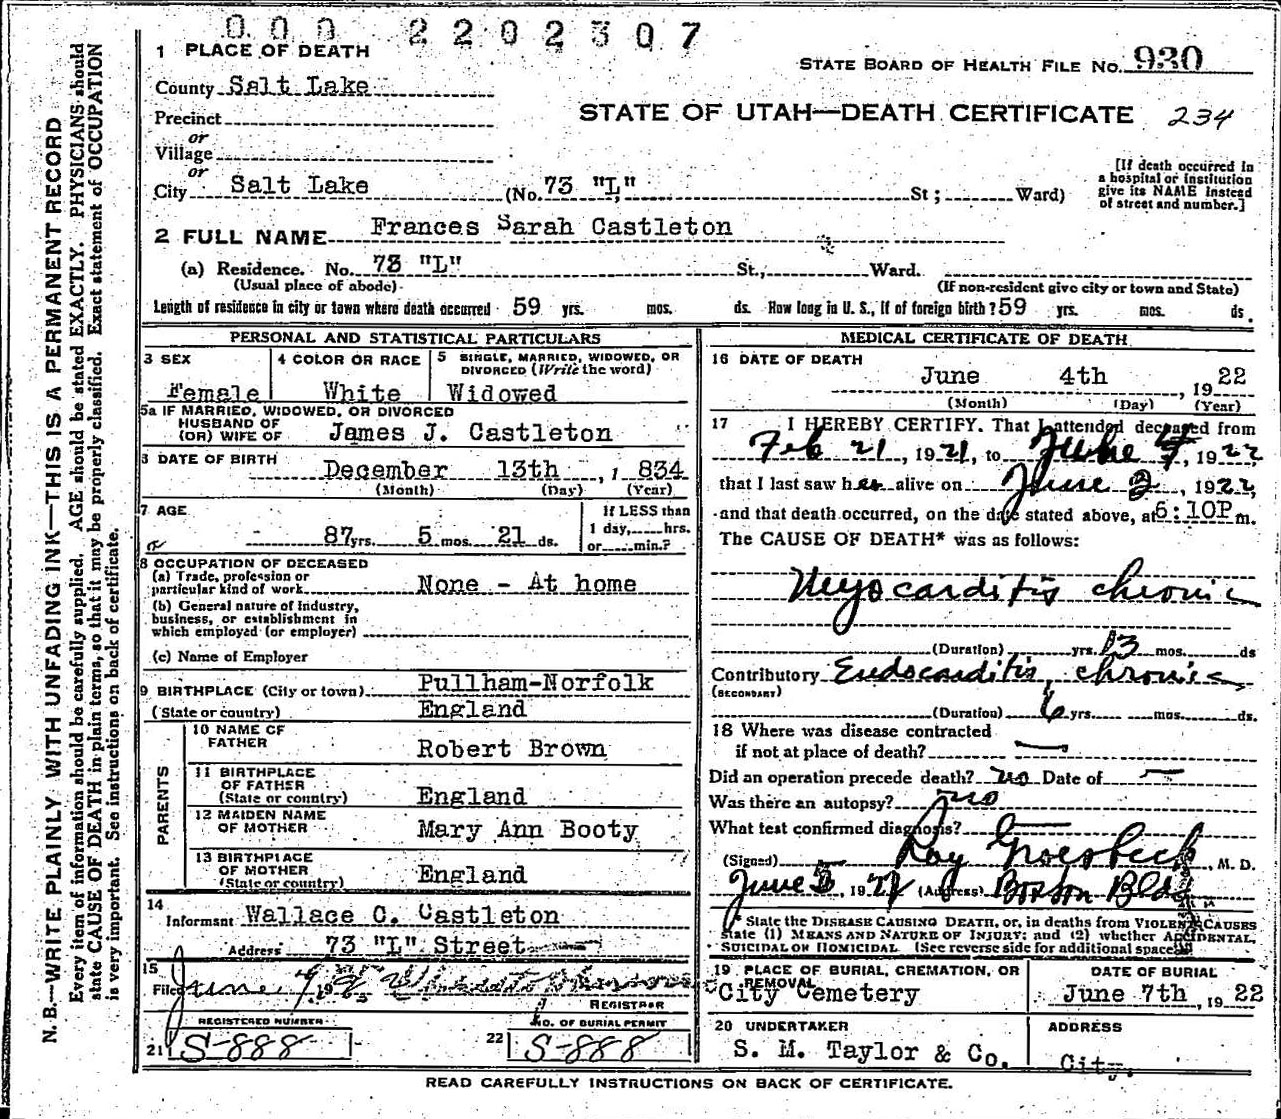 000 2202307
1 PLACE OF DEATH
STATE BOARD OF HEALTH FILE NO. 930
County Salt Lake
STATE OF UTAH—DEATH CERTIFICATE 234
Precinct
or
Village
or
City Salt Lake (No. 73 "L", St; Ward)
[If death occurred in
a hospital or institution
give its NAME instead
of street and number.]
2 FULL NAME Frances Sarah Castleton
(a) Residence. No. 73 "L" St., Ward.
(Usual place of abode) (If non-resident give city or town and State)
Length of residence in city or town where death occurred 59 yrs. mos. ds. How long in U. S., if of foreign birth? 59 yrs. mos. ds.
PERSONAL AND STATISTICAL PARTICULARS
3 SEX
Female
4 COLOR OR RACE
White
5 SINGLE, MARRIED, WIDOWED, OR
DIVORCED (Write the word)
Widowed
5a IF MARRIED, WIDOWED, OR DIVORCED
HUSBAND OF
(OR) WIFE OF James J. Castleton
6 DATE OF BIRTH
December 13th, 1834
(Month) (Day) (Year)
7 AGE
87 yrs. 5 mos. 21 ds.
If LESS than
1 day, hrs.
or min.?
8 OCCUPATION OF DECEASED
(a) Trade, profession or
particular kind of work None - At home
(b) General nature of Industry,
business, or establishment in
which employed (or employer)
(c) Name of Employer
9 BIRTHPLACE (City or town) Pullham-Norfolk
(State or country) England
PARENTS
10 NAME OF
FATHER Robert Brown
11 BIRTHPLACE
OF FATHER
(State or country) England
12 MAIDEN NAME
OF MOTHER Mary Ann Booty
13 BIRTHPLACE
OF MOTHER
(State or country) England
14
Informant Wallace C. Castleton
Address 73 "L" Street
15
Filed June
REGISTRAR
REGISTERED NUMBER
21 S-888
NO. OF BURIAL PERMIT
22 S-888
MEDICAL CERTIFICATE OF DEATH
16 DATE OF DEATH
June 4th, 1922
(Month) (Day) (Year)
17 I HEREBY CERTIFY. That I attended deceased from
Feb 21, 1921, to June 4, 1922,
that I last saw her alive on June 3, 1922,
and that death occurred, on the date stated above, at 6:10P m.
The CAUSE OF DEATH* was as follows:
Myocarditis chronic
(Duration) yrs. 13 mos. ds
Contributory Endocarditis, chronic
(SECONDARY)
(Duration) 6 yrs. mos. ds.
18 Where was disease contracted
if not at place of death? —
Did an operation precede death? no Date of —
Was there an autopsy? no
What test confirmed diagnosis? —
(Signed) Roy Groesbeck, M. D.
June 5, 1922 (Address) Boston Bldg
* State the DISEASE CAUSING DEATH, or, in deaths from VIOLENT CAUSES
state (1) MEANS AND NATURE OF INJURY; and (2) whether ACCIDENTAL,
SUICIDAL OR HOMICIDAL (See reverse side for additional space.)
19 PLACE OF BURIAL, CREMATION, OR
REMOVAL
City Cemetery
DATE OF BURIAL
June 7th, 1922
20 UNDERTAKER
S. M. Taylor & Co.
ADDRESS
City.
READ CAREFULLY INSTRUCTIONS ON BACK OF CERTIFICATE.
N. B.—WRITE PLAINLY WITH UNFADING INK—THIS IS A PERMANENT RECORD
Every item of information should be carefully supplied. AGE should be stated EXACTLY. PHYSICIANS should
state CAUSE OF DEATH in plain terms, so that it may be properly classified. Exact statement of OCCUPATION
is very important. See instructions on back of certificate.